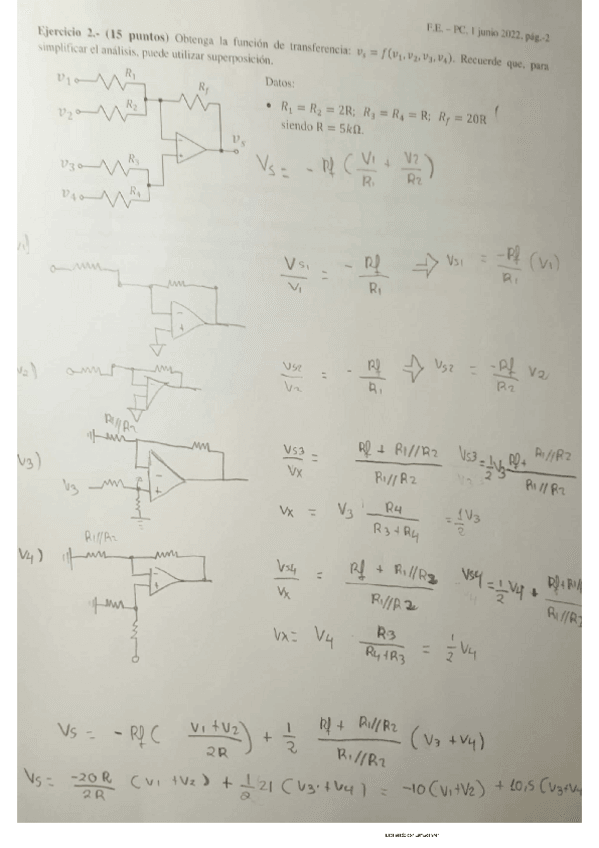 F.E. – PC. 1 junio 2022, pág.-2
Ejercicio 2.- (15 puntos) Obtenga la función de transferencia: vs = f(v1, v2, v3, v4). Recuerde que, para
simplificar el análisis, puede utilizar superposición.
v1 R1
Rf
v2 R2
vs
v3 R3
v4 R4
Datos:
• R1 = R2 = 2R; R3 = R4 = R; Rf = 20R
siendo R = 5kΩ.
Vs = - Rf ( V1/R1 + V2/R2 )
V1)
Vs1/V1 = - Rf/R1 ⇒ Vs1 = -Rf/R1 (V1)
V2)
Vs2/V2 = - Rf/R1 ⇒ Vs2 = -Rf/R2 V2
R1//R2
V3)
V3
Vs3/Vx = Rf + R1//R2 / R1//R2 Vs3 = 1/2 V3 Rf + R1//R2 / R1//R2
Vx = V3 R4/R3+R4 = 1/2 V3
R1//R2
V4)
Vs4/Vx = Rf + R1//R2 / R1//R2 Vs4 = 1/2 V4 · Rf+R1// / R1//R2
Vx = V4 R3/R4+R3 = 1/2 V4
Vs = - Rf ( V1+V2 / 2R ) + 1/2 Rf + R1//R2 / R1//R2 (V3 + V4)
Vs = -20R/2R (V1 + V2) + 1/2 21 (V3 + V4) = -10(V1+V2) + 10,5 (V3+V4